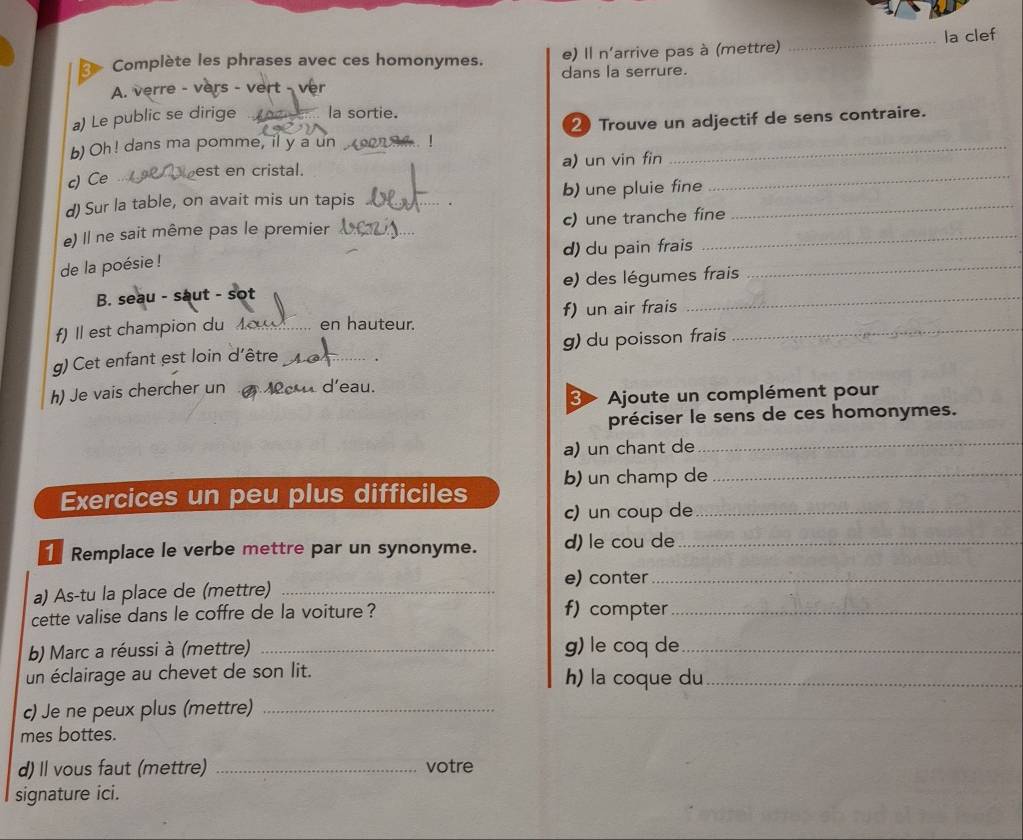 3 Complète les phrases avec ces homonymes.
A. verre - vers - vert - ver
a) Le public se dirige ............ la sortie.
b) Oh! dans ma pomme, il y a un ............ !
c) Ce ............ est en cristal.
d) Sur la table, on avait mis un tapis vert .
e) Il ne sait même pas le premier ............
de la poésie !
B. seau - saut - sot
f) Il est champion du saut en hauteur.
g) Cet enfant est loin d'être sot .
h) Je vais chercher un seau d'eau.
Exercices un peu plus difficiles
1 Remplace le verbe mettre par un synonyme.
a) As-tu la place de (mettre) ............
cette valise dans le coffre de la voiture ?
b) Marc a réussi à (mettre) ............
un éclairage au chevet de son lit.
c) Je ne peux plus (mettre) ............
mes bottes.
d) Il vous faut (mettre) ............ votre
signature ici.
e) Il n'arrive pas à (mettre) ............ la clef
dans la serrure.
2 Trouve un adjectif de sens contraire.
a) un vin fin ............
b) une pluie fine ............
c) une tranche fine ............
d) du pain frais ............
e) des légumes frais ............
f) un air frais ............
g) du poisson frais ............
3 Ajoute un complément pour
préciser le sens de ces homonymes.
a) un chant de ............
b) un champ de ............
c) un coup de ............
d) le cou de ............
e) conter ............
f) compter ............
g) le coq de ............
h) la coque du ............